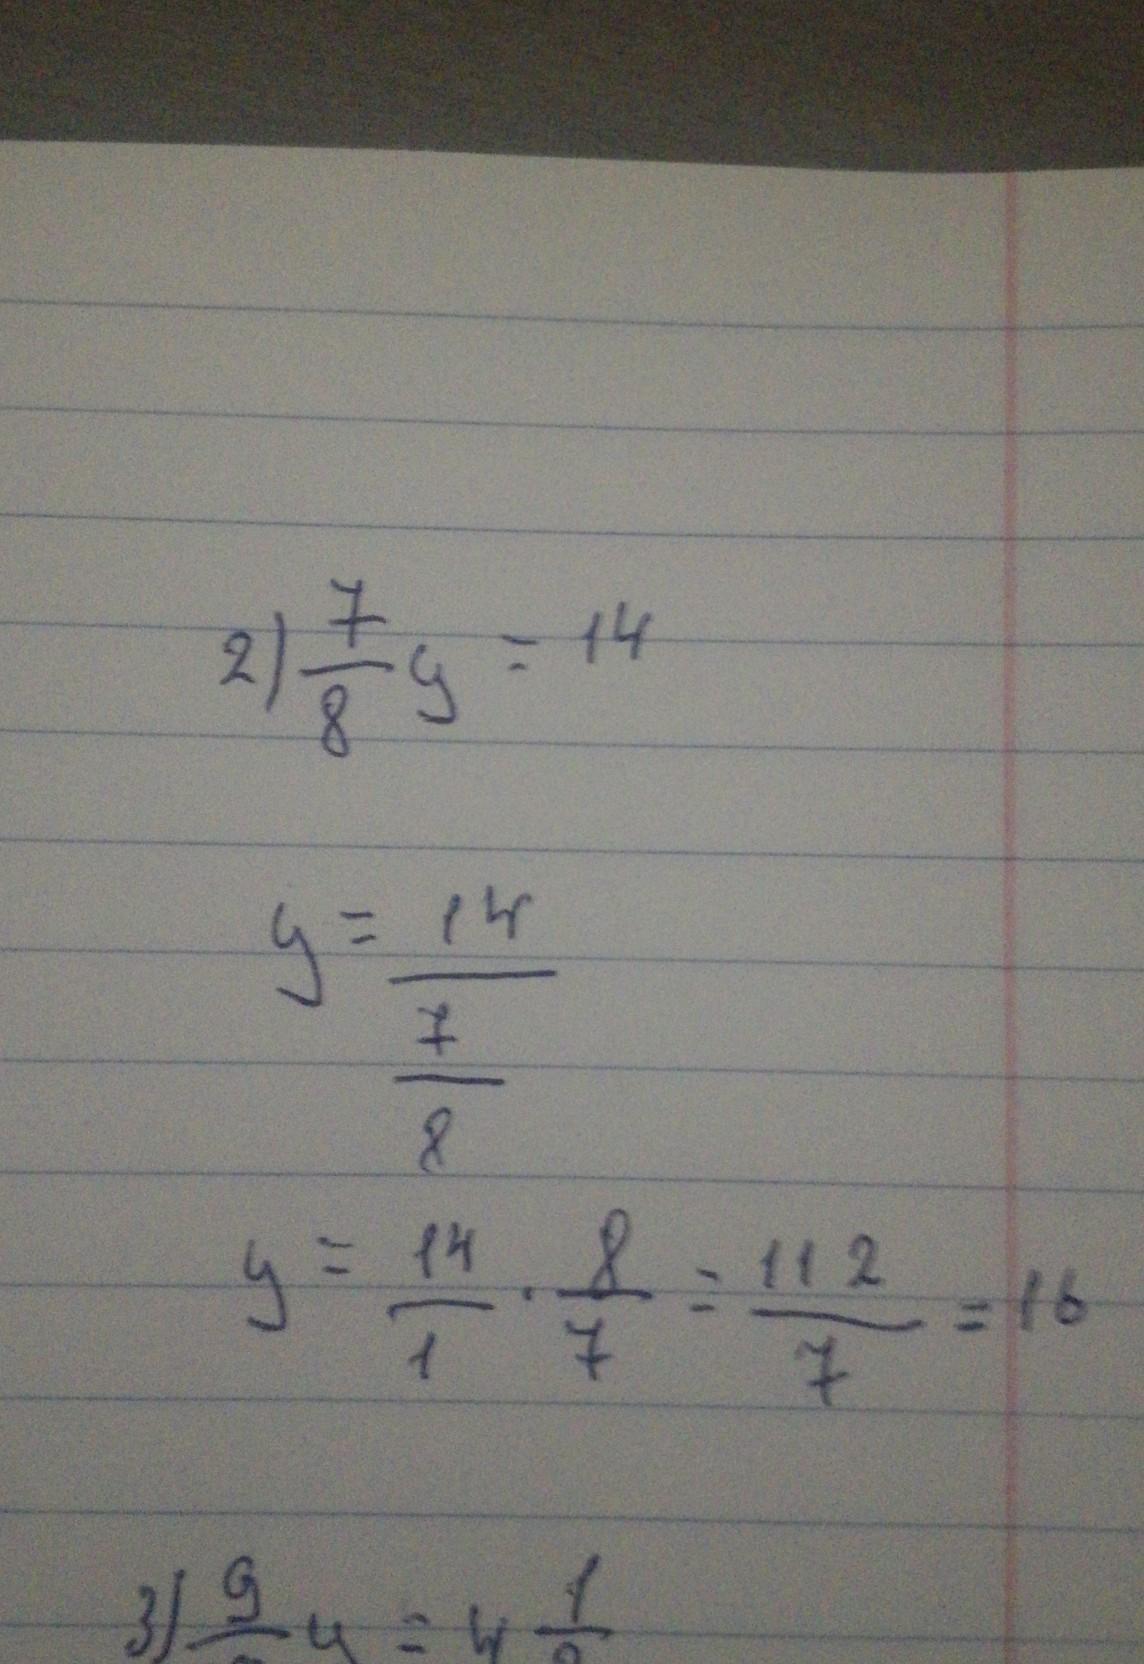 2) 7/8 y = 14
y = 14/(7/8)
y = 14/1 · 8/7 = 112/7 = 16
3) 9/ y = 4 1/